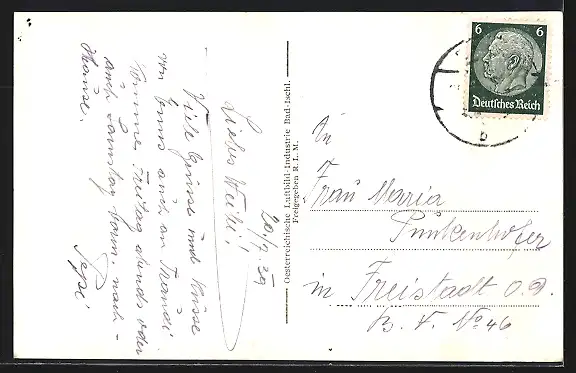 20/7. 39
Liebes Weibi!
Viele Grüsse und Küsse
von Euns auch an Franzi.
Komme Freitag abends oder
auch Samstag vorm. nach
Hause.
Pepi
Oesterreichische Luftbild-Industrie Bad-Ischl.
Freigegeben R. L. M.
6 6
Deutsches Reich
b
An
Frau Maria
Punkenhofer
in Freistadt O. D.
B. V. No 46